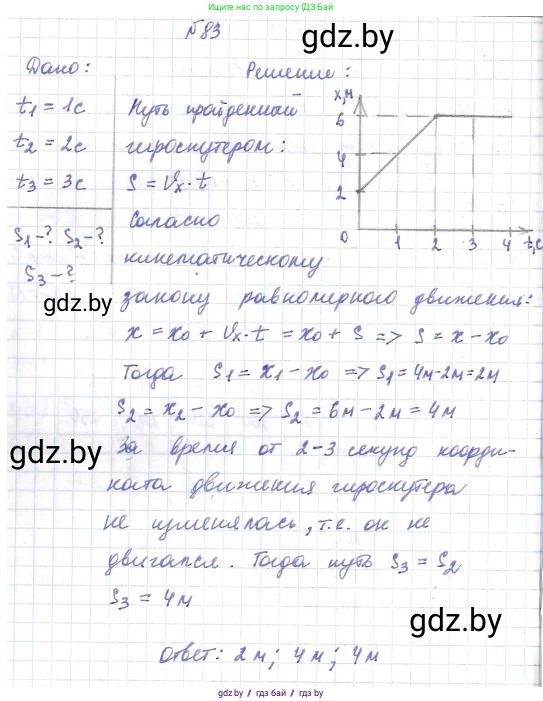 Выгодные покупки по запросу OZON.by
№83
gdz.by
Дано:
Решение:
t₁ = 1с
t₂ = 2с
t₃ = 3с
S₁-? S₂-?
S₃-?
gdz.by
Путь пройденный
гироскутером:
S = Vₓ·t
Согласно
кинематическому
x,м
6
4
2
0 1 2 3 4 t,с
закону равномерного движения:
x = x₀ + Vₓ·t = x₀ + S => S = x - x₀
Тогда S₁ = x₁ - x₀ => S₁ = 4м-2м=2м
S₂ = x₂ - x₀ => S₂ = 6м-2м = 4м
gdz.by
За время от 2-3 секунд коорди-
ната движения гироскутера
не изменялась, т.е. он не
двигался. Тогда путь S₃ = S₂
S₃ = 4м
gdz.by
Ответ: 2м; 4м; 4м
gdz.by / гдз бай / gdz by